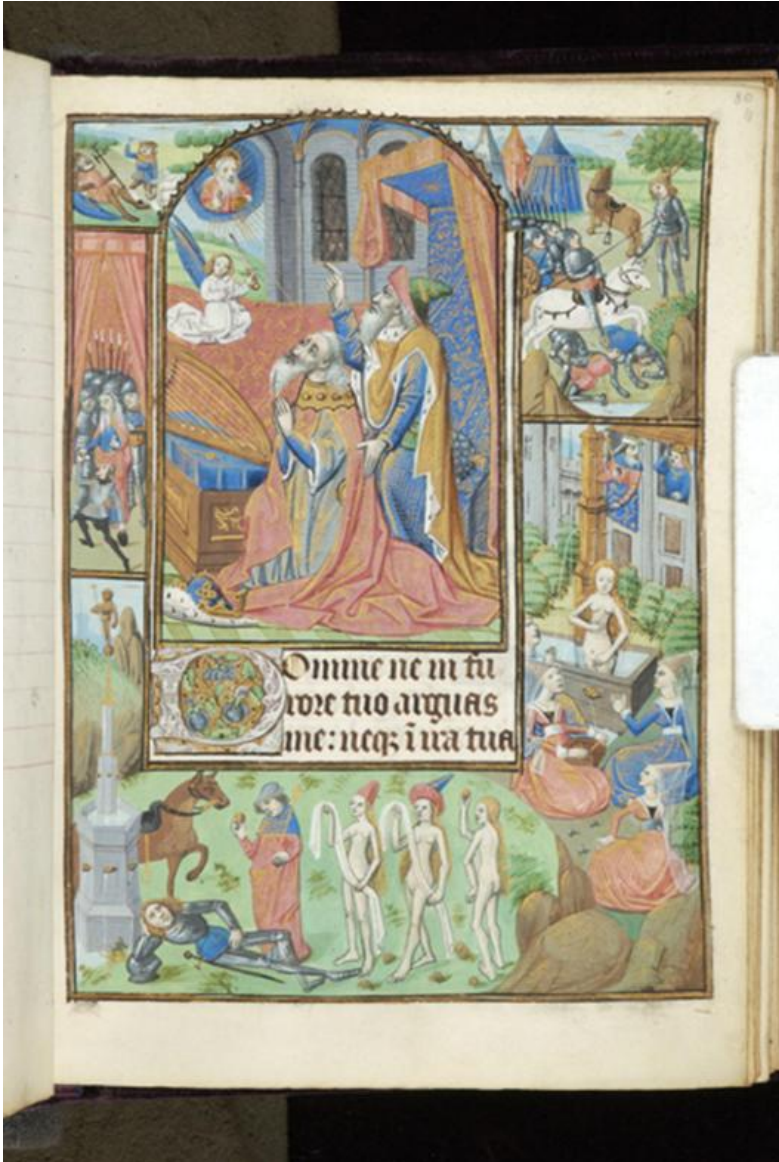 Domine ne in fu
rore tuo arguas
me: neqꝫ ī ira tua
80